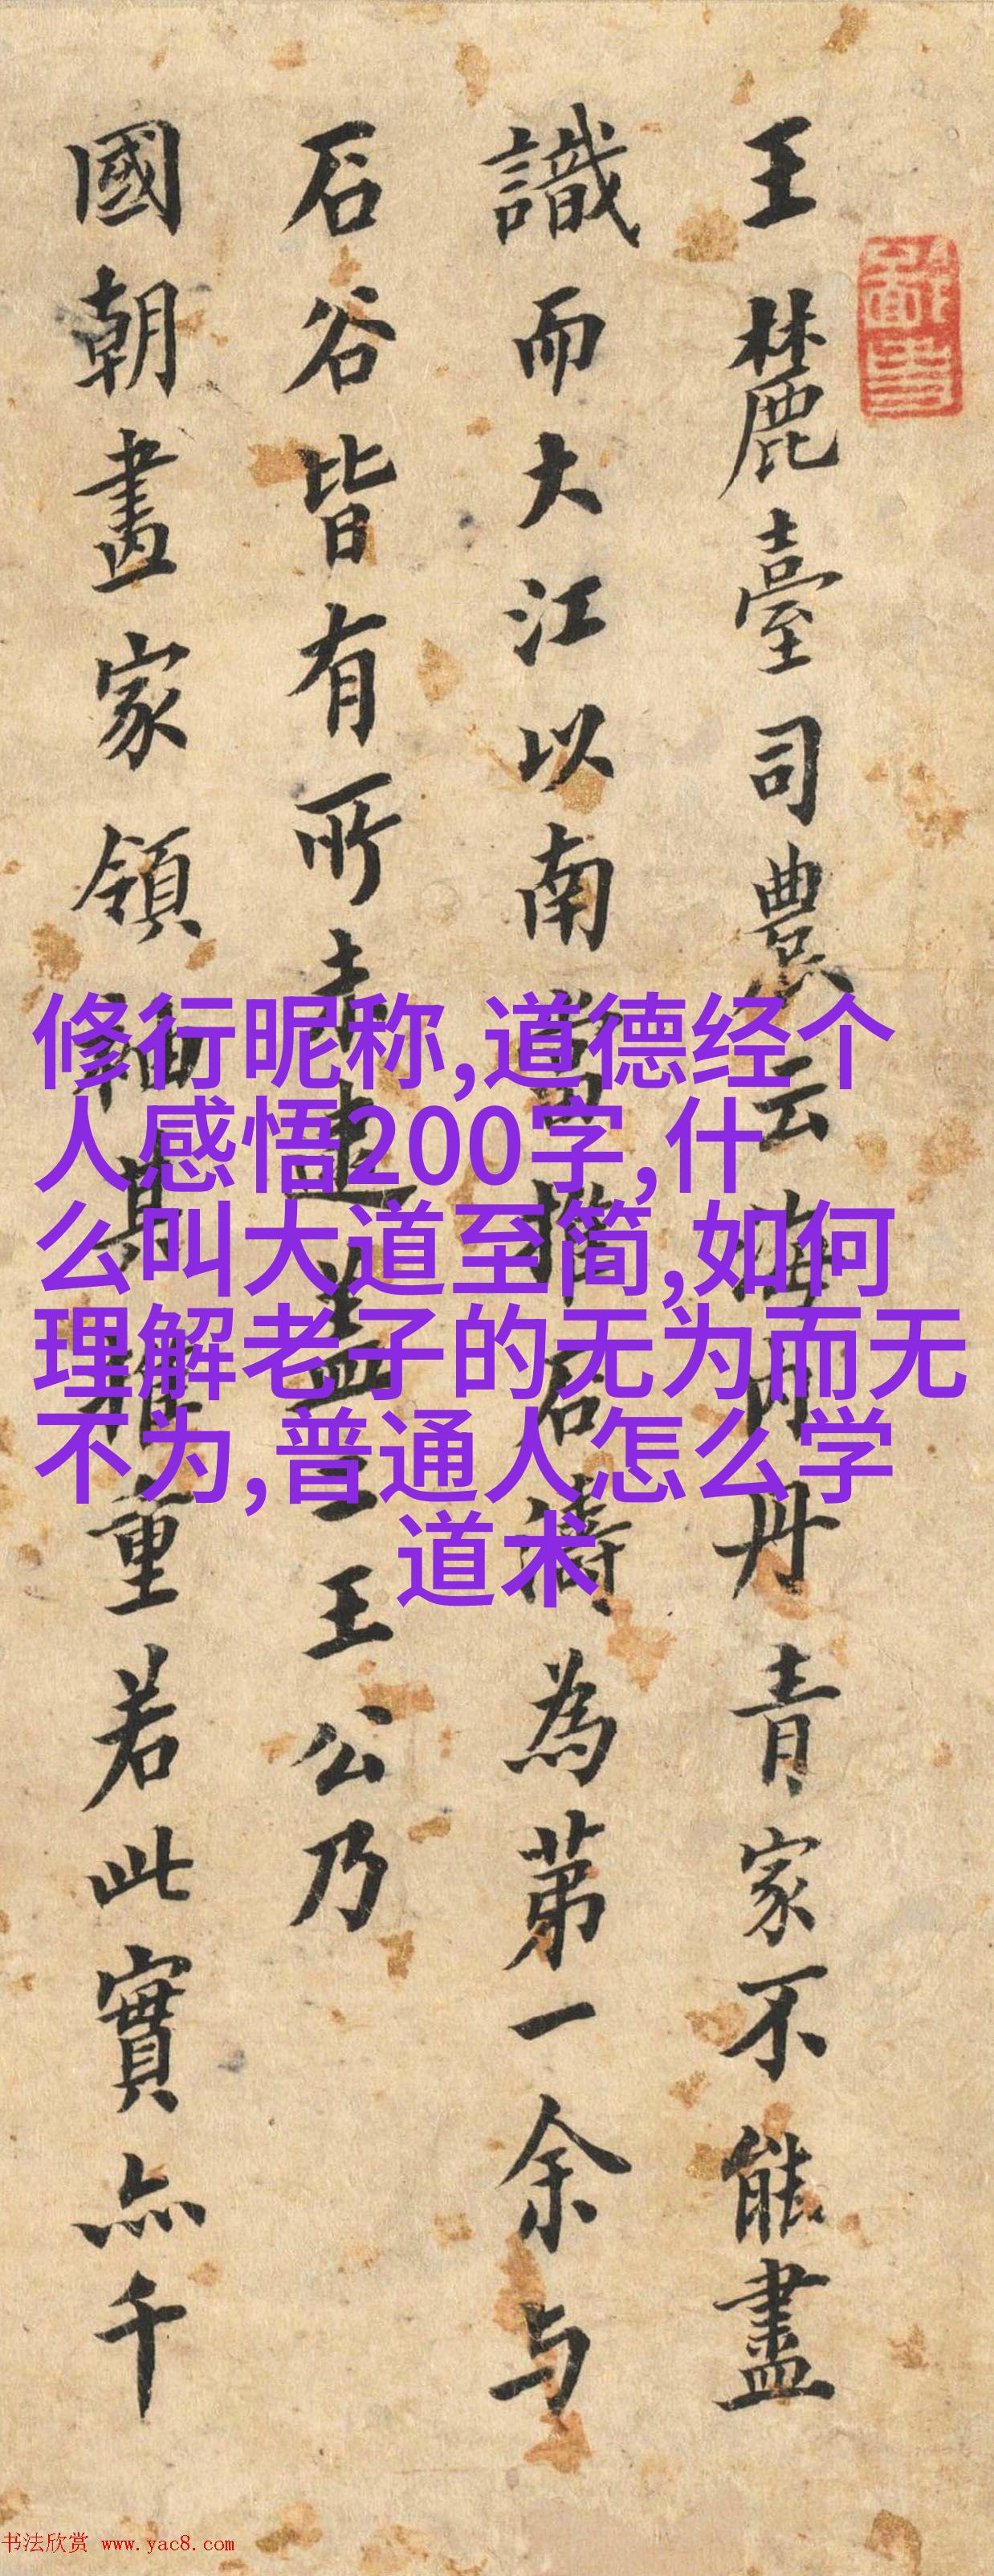 王麓臺司農云海内丹青家不能盡
識而大江以南當推石濤為第一余与
石谷皆有所未逮盖二王公乃
國朝畫家領袖其推重若此實亦千
修行昵称,道德经个
人感悟200字,什
么叫大道至简,如何
理解老子的无为而无
不为,普通人怎么学
道术
书法欣赏 www.yac8.com